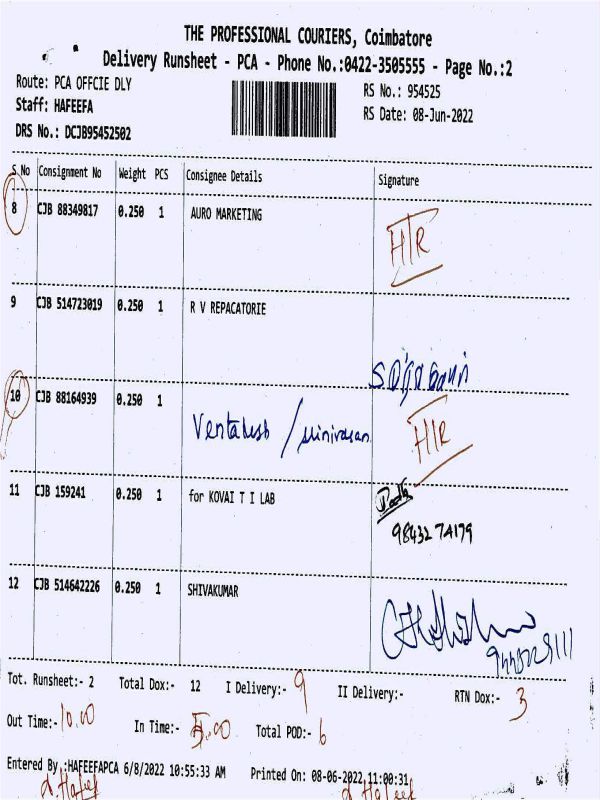 THE PROFESSIONAL COURIERS, Coimbatore
Delivery Runsheet - PCA - Phone No.:0422-3505555 - Page No.:2
Route: PCA OFFCIE DLY
RS No.: 954525
Staff: HAFEEFA
RS Date: 08-Jun-2022
DRS No.: DCJB95452502
S.No Consignment No Weight PCS Consignee Details Signature
8 CJB 88349817 0.250 1 AURO MARKETING
HTR
9 CJB 514723019 0.250 1 R V REPACATORIE
10 CJB 88164939 0.250 1
HTR
11 CJB 159241 0.250 1 for KOVAI T I LAB
98432 74179
12 CJB 514642226 0.250 1 SHIVAKUMAR
Tot. Runsheet:- 2 Total Dox:- 12 I Delivery:- 9 II Delivery:- RTN Dox:- 3
Out Time:- 10.00 In Time:- 5.00 Total POD:- 6
Entered By :HAFEEFAPCA 6/8/2022 10:55:33 AM Printed On: 08-06-2022 11:00:31